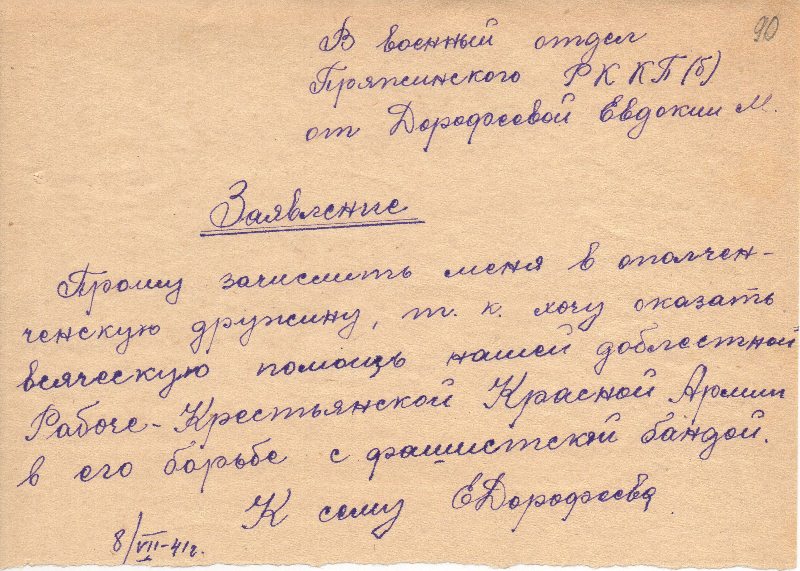 90
В военный отдел
Пряжинского РК КП(б)
от Дорофеевой Евдокии М.
Заявление
Прошу зачислить меня в ополчен-
ческую дружину, т. к. хочу оказать
всяческую помощь нашей доблестной
Рабоче-Крестьянской Красной Армии
в его борьбе с фашистской бандой.
К сему ЕДорофеева
8/VII-41г.